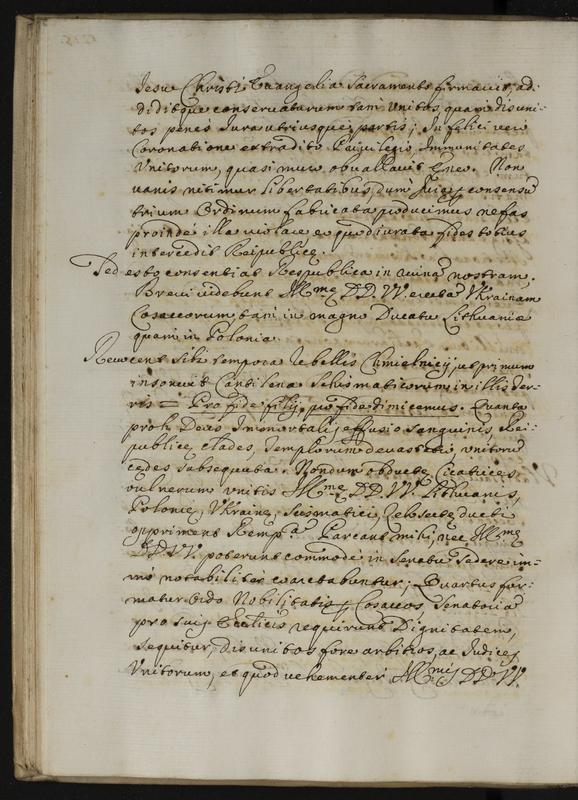 Jesu Christi Evangelia Sacramento firmavit, ad-
didit que conservaturum tam Unitos quam disuni-
tos penes Jura utriusque partis; In felici vero
Coronatione extradito Privilegio Immunitates
Unitorum, quasi muro obvallavit Non
vanis nitimur libertatibus, dum hic consensu
trium Ordinum fabricata producimus nefas
proinde illa violare eo quod iurata fides totius
intercedit Reipublicæ.
Sed esto consentiat Respublica in ruinam nostram.
Brevi videbunt Illmæ DD. VV. Ukrainam
Cosaccorum tam in magno Ducatu Lithuaniæ
quam in Polonia.
sibi tempora rebellis Chmielnicij, ut primum
Cantilena Schismaticorum in illis ter-
ris = Pro fide filij, pro fide dimicemus. Quanta
proh Deus Immortalis effusio sanguinis, Rei-
publicæ clades, Templorum devastatio, Unitorum
cædes subsequuta. Nondum obductæ cicatrices
vulnerum unitis Illmæ DD. VV. Lithuaniæ,
Poloniæ, Ukrainæ, Scismatici, Zelo sectæ ducti
oppriment Remp.cam Parcant mihi, nec Illmæ
DD. VV. poterunt commodè in Senatu sedere im-
mò notabiliter coarctabuntur; Quartus for-
matur Ordo Nobilitatis Cosaccos, Senatoria
pro suis requirunt Dignitatem,
sequitur, disunitos fore arbitros, ac Judices
Unitorum, et quod vehementer Illmis DD. VV.